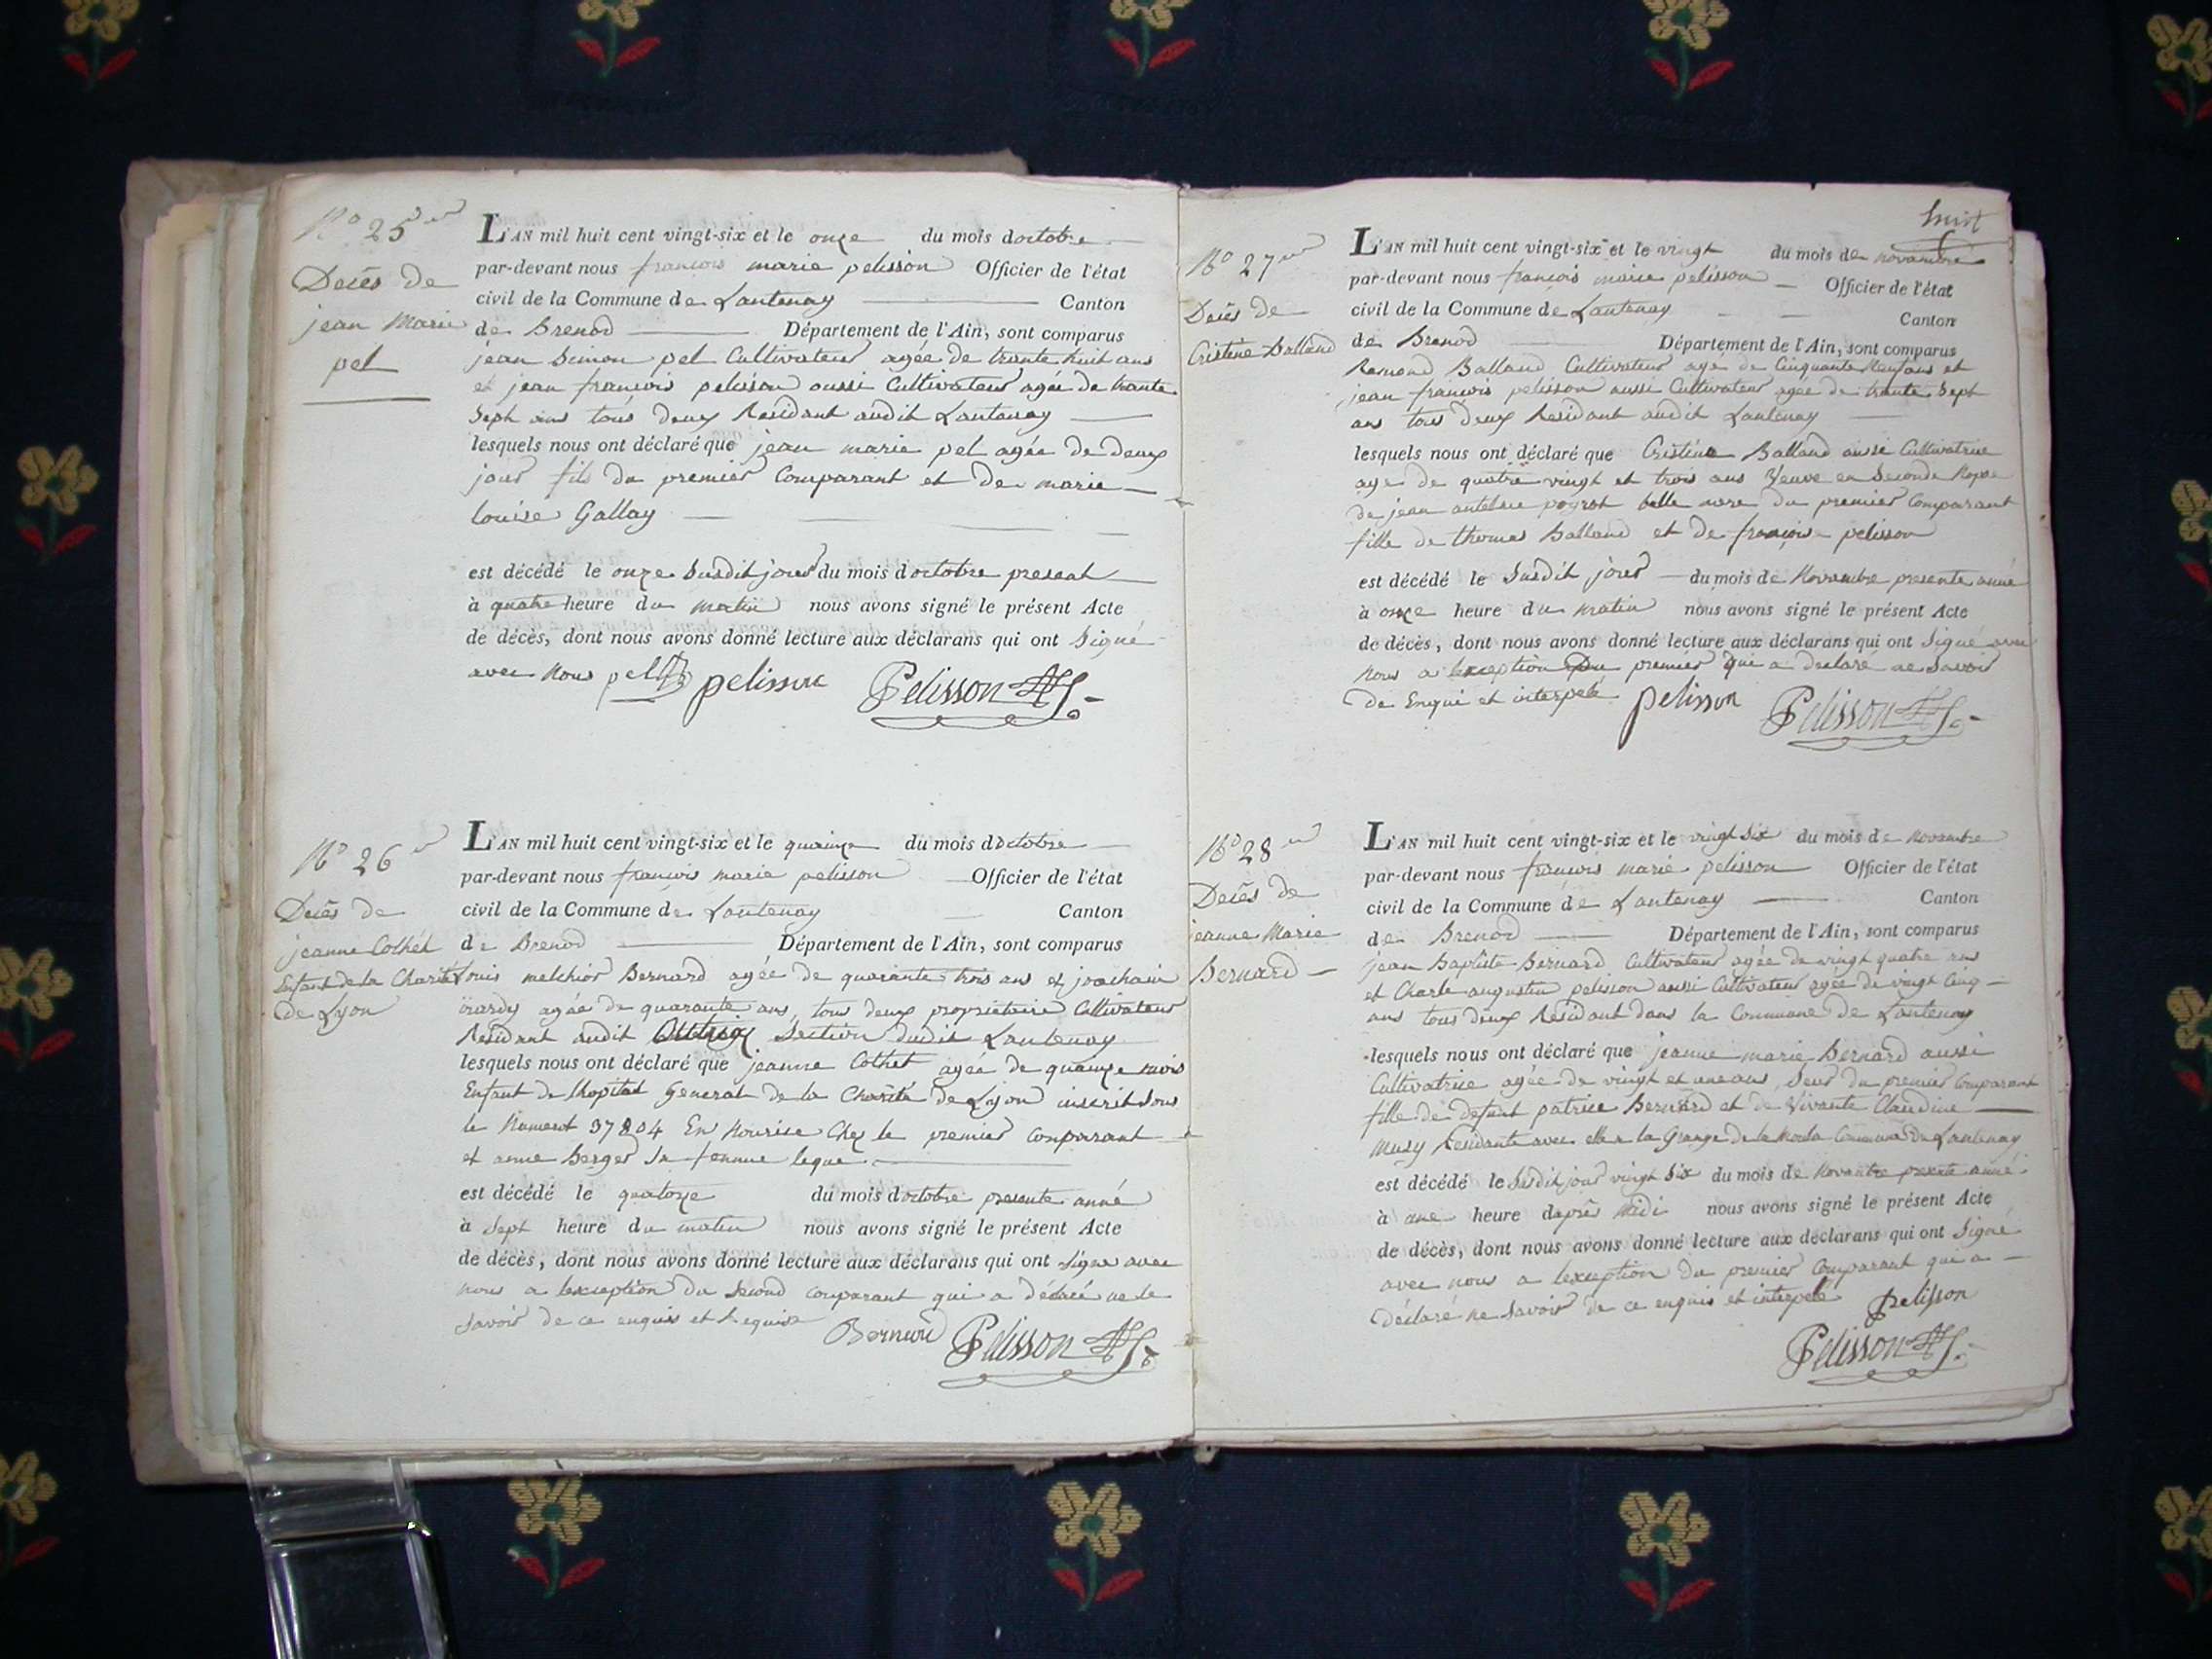 No 25
Decès de
jean Marie
pel
L'AN mil huit cent vingt-six et le onze du mois doctobre
par-devant nous francois marie pelisson Officier de l'état
civil de la Commune de Lantenay Canton
de Brenod Département de l'Ain, sont comparus
jean Simon pel Cultivateur agée de trante huit ans
et jean francois pelisson aussi Cultivateur agée de trante
Sept ans tous deux Residant audit Lantenay
lesquels nous ont déclaré que jean marie pel agée de deux
jour fils du premier Comparant et de marie
louise Gallay
est décédé le onze Susdit jour du mois doctobre present
à quatre heure du matin nous avons signé le présent Acte
de décès, dont nous avons donné lecture aux déclarans qui ont Signé
avec Nous pel pelisson Pelisson
No 26
Decès de
jeanne Cothet
Enfant de la Charité
de Lyon
L'AN mil huit cent vingt-six et le quainze du mois doctobre
par-devant nous francois marie pelisson Officier de l'état
civil de la Commune de Lantenay Canton
de Brenod Département de l'Ain, sont comparus
Louis melchior Bernard agée de quarante trois ans et joachain
agée de quarante ans, tous deux propriétaire Cultivateur
Residant audit Section dudit Lantenay
lesquels nous ont déclaré que jeanne Cothet agée de quainze mois
Enfant de lhopital General de la Charité de Lyon inscrit Sous
le Numerot 37804 En Nourice Chez le premier Comparant
et anne Berger Sa femme leque
est décédé le quatorze du mois doctobre presente anné
à Sept heure du matin nous avons signé le présent Acte
de décès, dont nous avons donné lecture aux déclarans qui ont Signe avec
nous a lexception du Second Comparant qui a déclaré ne le
Savoir de ce enquis et Requise Bernard Pelisson
huit
No 27
Decès de
Cristine Balland
L'AN mil huit cent vingt-six et le vingt du mois de novembre
par-devant nous francois marie pelisson Officier de l'état
civil de la Commune de Lantenay Canton
de Brenod Département de l'Ain, sont comparus
Remond Balland Cultivateur agé de Cinquante Neuf ans et
jean francois pelisson aussi Cultivateur agée de trante Sept
ans tous deux Residant audit Lantenay
lesquels nous ont déclaré que Cristine Balland aussi Cultivatrice
age de quatre vingt et trois ans Veuve en Seconde Nopse
de jean antelme poyrot belle mere du premier Comparant
fille de thomas Balland et de françoise pelisson
est décédé le Susdit jour du mois de Novembre presente anné
à onze heure du matin nous avons signé le présent Acte
de décès, dont nous avons donné lecture aux déclarans qui ont Signé avec
nous a lexception Du premier qui a declaré ne Savoir
de Enqui et interpelé pelisson Pelisson
No 28
Decès de
jeanne Marie
Bernard
L'AN mil huit cent vingt-six et le vingt Six du mois de Novembre
par-devant nous francois marie pelisson Officier de l'état
civil de la Commune de Lantenay Canton
de Brenod Département de l'Ain, sont comparus
jean Baptiste Bernard Cultivateur agée de vingt quatre ans
et Charle augustin pelisson aussi Cultivateur agée de vingt Cinq
ans tous deux Residant dans la Commune de Lantenay
lesquels nous ont déclaré que jeanne marie Bernard aussi
Cultivatrice agée de vingt et une ans, Seur du premier Comparant
fille de defunt patrice Bernard et de Vivante Claudine
Musy Residante avec elle a la Grange de la Commune de Lantenay
est décédé le Susdit jour vingt Six du mois de Novembre presente anné
à une heure daprès midi nous avons signé le présent Acte
de décès, dont nous avons donné lecture aux déclarans qui ont Signé
avec nous a lexception du premier Comparant qui a
déclaré ne Savoir de ce enquis et interpelé pelisson
Pelisson